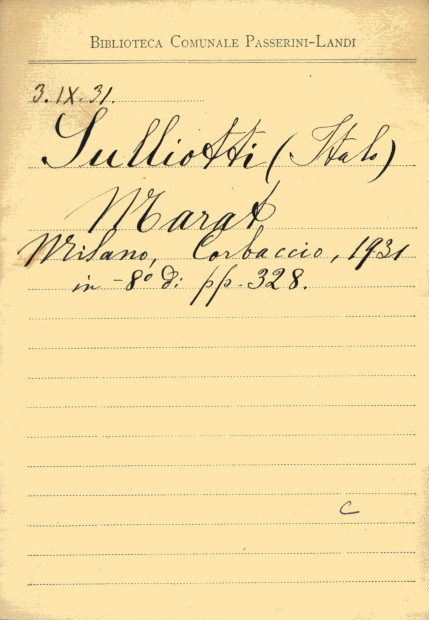 BIBLIOTECA COMUNALE PASSERINI-LANDI
3. IX. 31.
Sulliotti (Italo)
Marat
Milano, Corbaccio, 1931
in -8º di pp. 328.
C